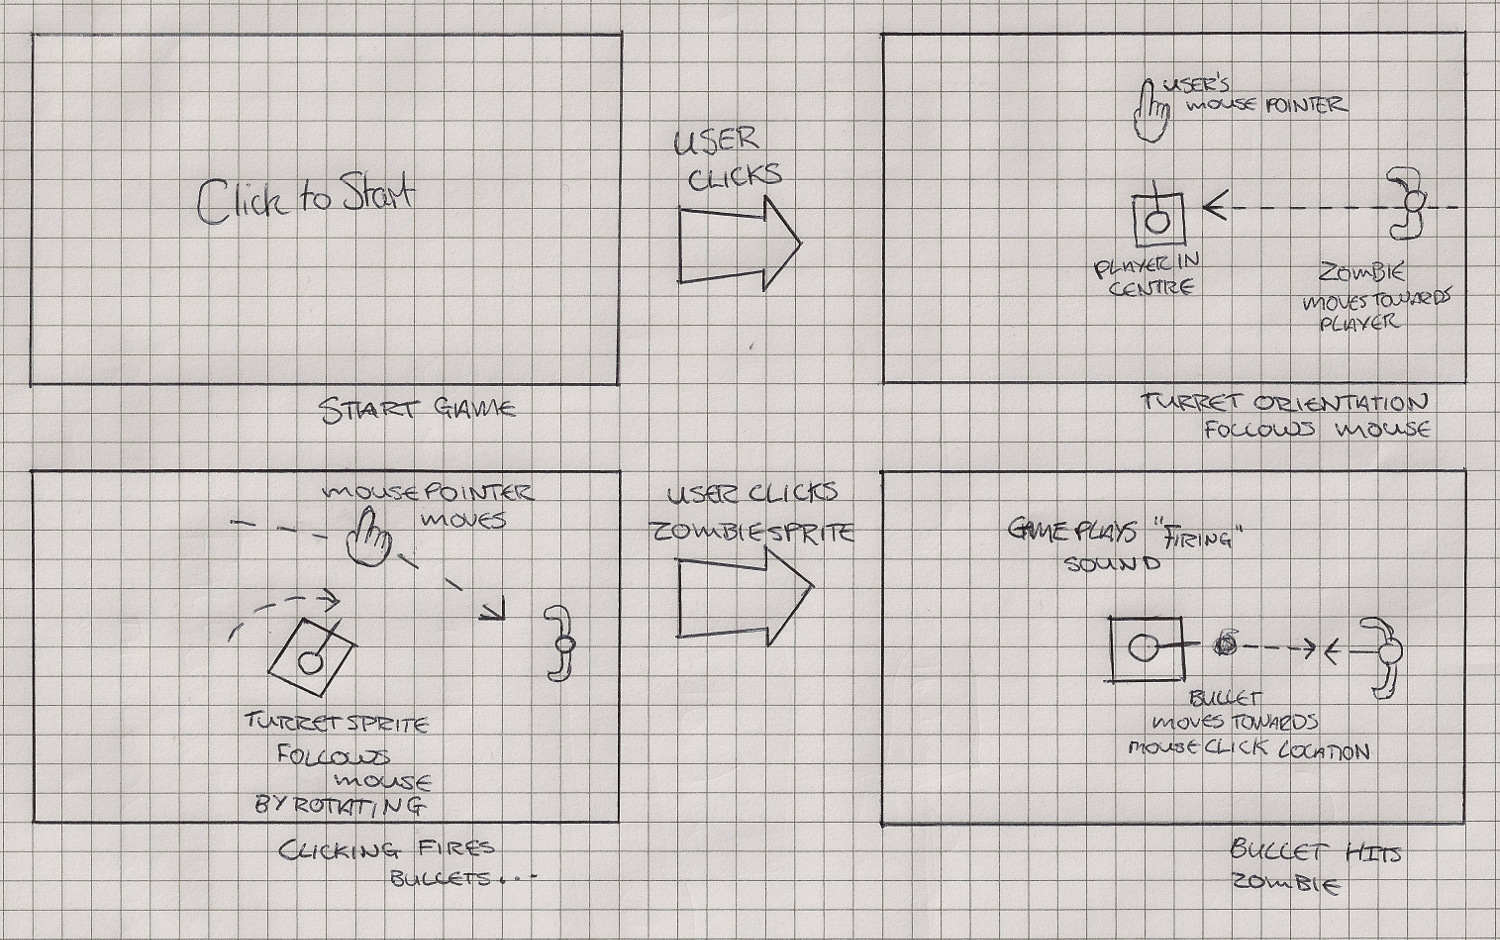 Click to Start
START GAME
USER
CLICKS
USER'S
MOUSE POINTER
PLAYER IN
CENTRE
ZOMBIE
MOVES TOWARDS
PLAYER
TURRET ORIENTATION
FOLLOWS MOUSE
MOUSE POINTER
MOVES
TURRET SPRITE
FOLLOWS
MOUSE
BY ROTATING
CLICKING FIRES
BULLETS...
USER CLICKS
ZOMBIE SPRITE
GAME PLAYS "FIRING"
SOUND
BULLET
MOVES TOWARDS
MOUSE CLICK LOCATION
BULLET HITS
ZOMBIE